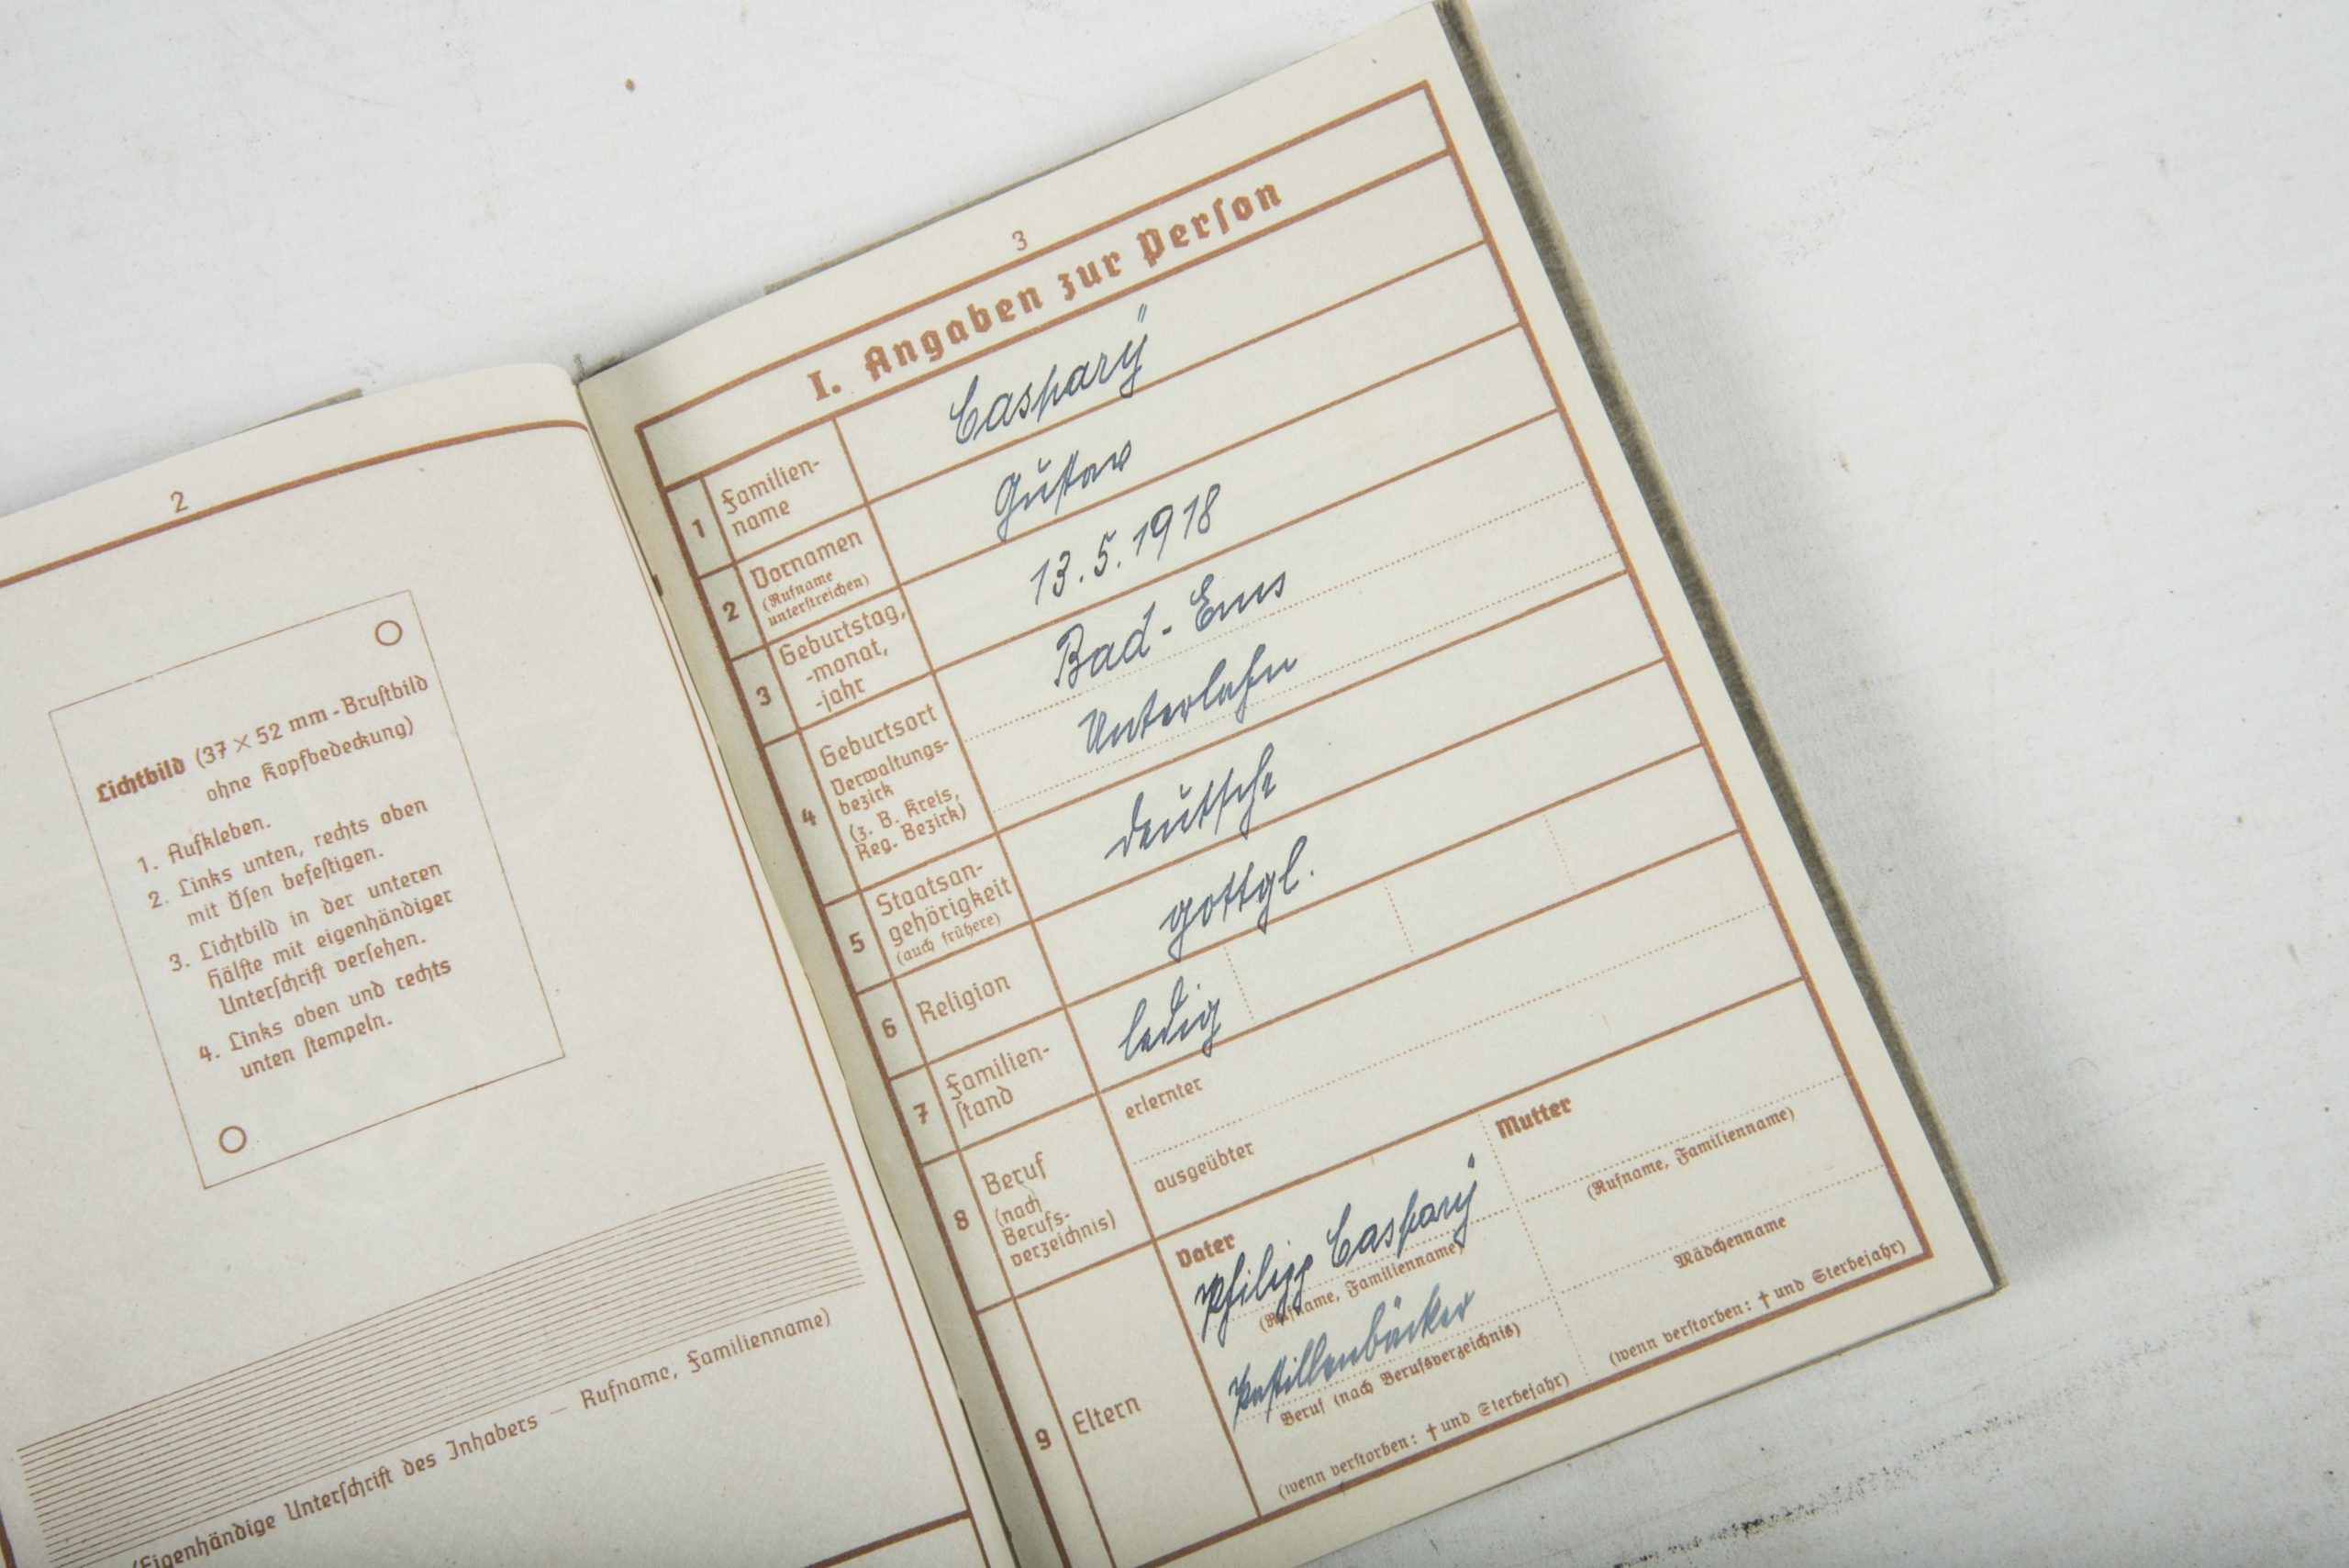 2
Lichtbild (37 × 52 mm-Brustbild
ohne Kopfbedeckung)
1. Aufkleben.
2. Links unten, rechts oben
mit Ösen befestigen.
3. Lichtbild in der unteren
Hälfte mit eigenhändiger
Unterschrift versehen.
4. Links oben und rechts
unten stempeln.
(Eigenhändige Unterschrift des Inhabers — Rufname, Familienname)
3
I. Angaben zur Person
1
Familien-
name
Casparÿ
2
Vornamen
(Rufname
unterstreichen)
Gustav
3
Geburtstag,
-monat,
-jahr
13.5.1918
4
Geburtsort
Verwaltungs-
bezirk
(z. B. Kreis,
Reg. Bezirk)
Bad-Ems
Unterlahn
5
Staatsan-
gehörigkeit
(auch frühere)
deutsche
6
Religion
gottgl.
7
Familien-
stand
ledig
8
Beruf
(nach
Berufs-
verzeichnis)
erlernter
ausgeübter
9
Eltern
Vater
Philipp Casparÿ
(Rufname, Familienname)
Pastillenbäcker
Beruf (nach Berufsverzeichnis)
(wenn verstorben: † und Sterbejahr)
Mutter
(Rufname, Familienname)
Mädchenname
(wenn verstorben: † und Sterbejahr)